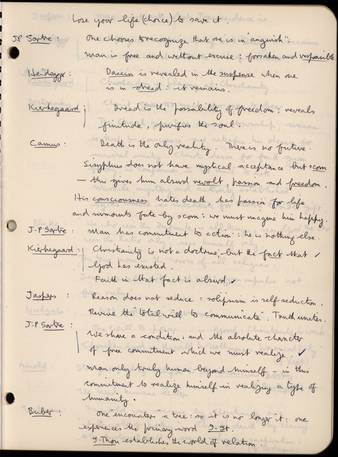 Lose your life (choice) to save it
J.P Sartre : One chooses to recognize that one is in "anguish".
man is free and without excuse : forsaken and responsible
Heidegger : Dasein is revealed in the suspense when one
is in dread : it remains.
Kierkegaard : Dread is the possibility of freedom : reveals
finitude, purifies the soul.
Camus : Death is the only reality. There is no future.
Sisyphus does not have mystical acceptance but scorn
— this gives him absurd revolt, passion and freedom.
His consciousness hates death, has passion for life
and surmounts fate by scorn : we must imagine him happy.
J.P Sartre : man has commitment to action : he is nothing else
Kierkegaard : Christianity is not a doctrine, but the fact that ✓
God has existed.
Faith is that fact is absurd ✓
Jaspers : Reason does not seduce : solipsism is self-seduction.
Revive the total will to communicate. Truth unites.
J.P Sartre : We share a condition : and the absolute character
of free commitment which we must realize. ✓
man only truly human beyond himself — in this
commitment to realize himself in realizing a type of
humanity.
Buber : One encounters a tree : so it is no longer it : one
expresses the primary word I-It.
I-Thou establishes the world of relation.